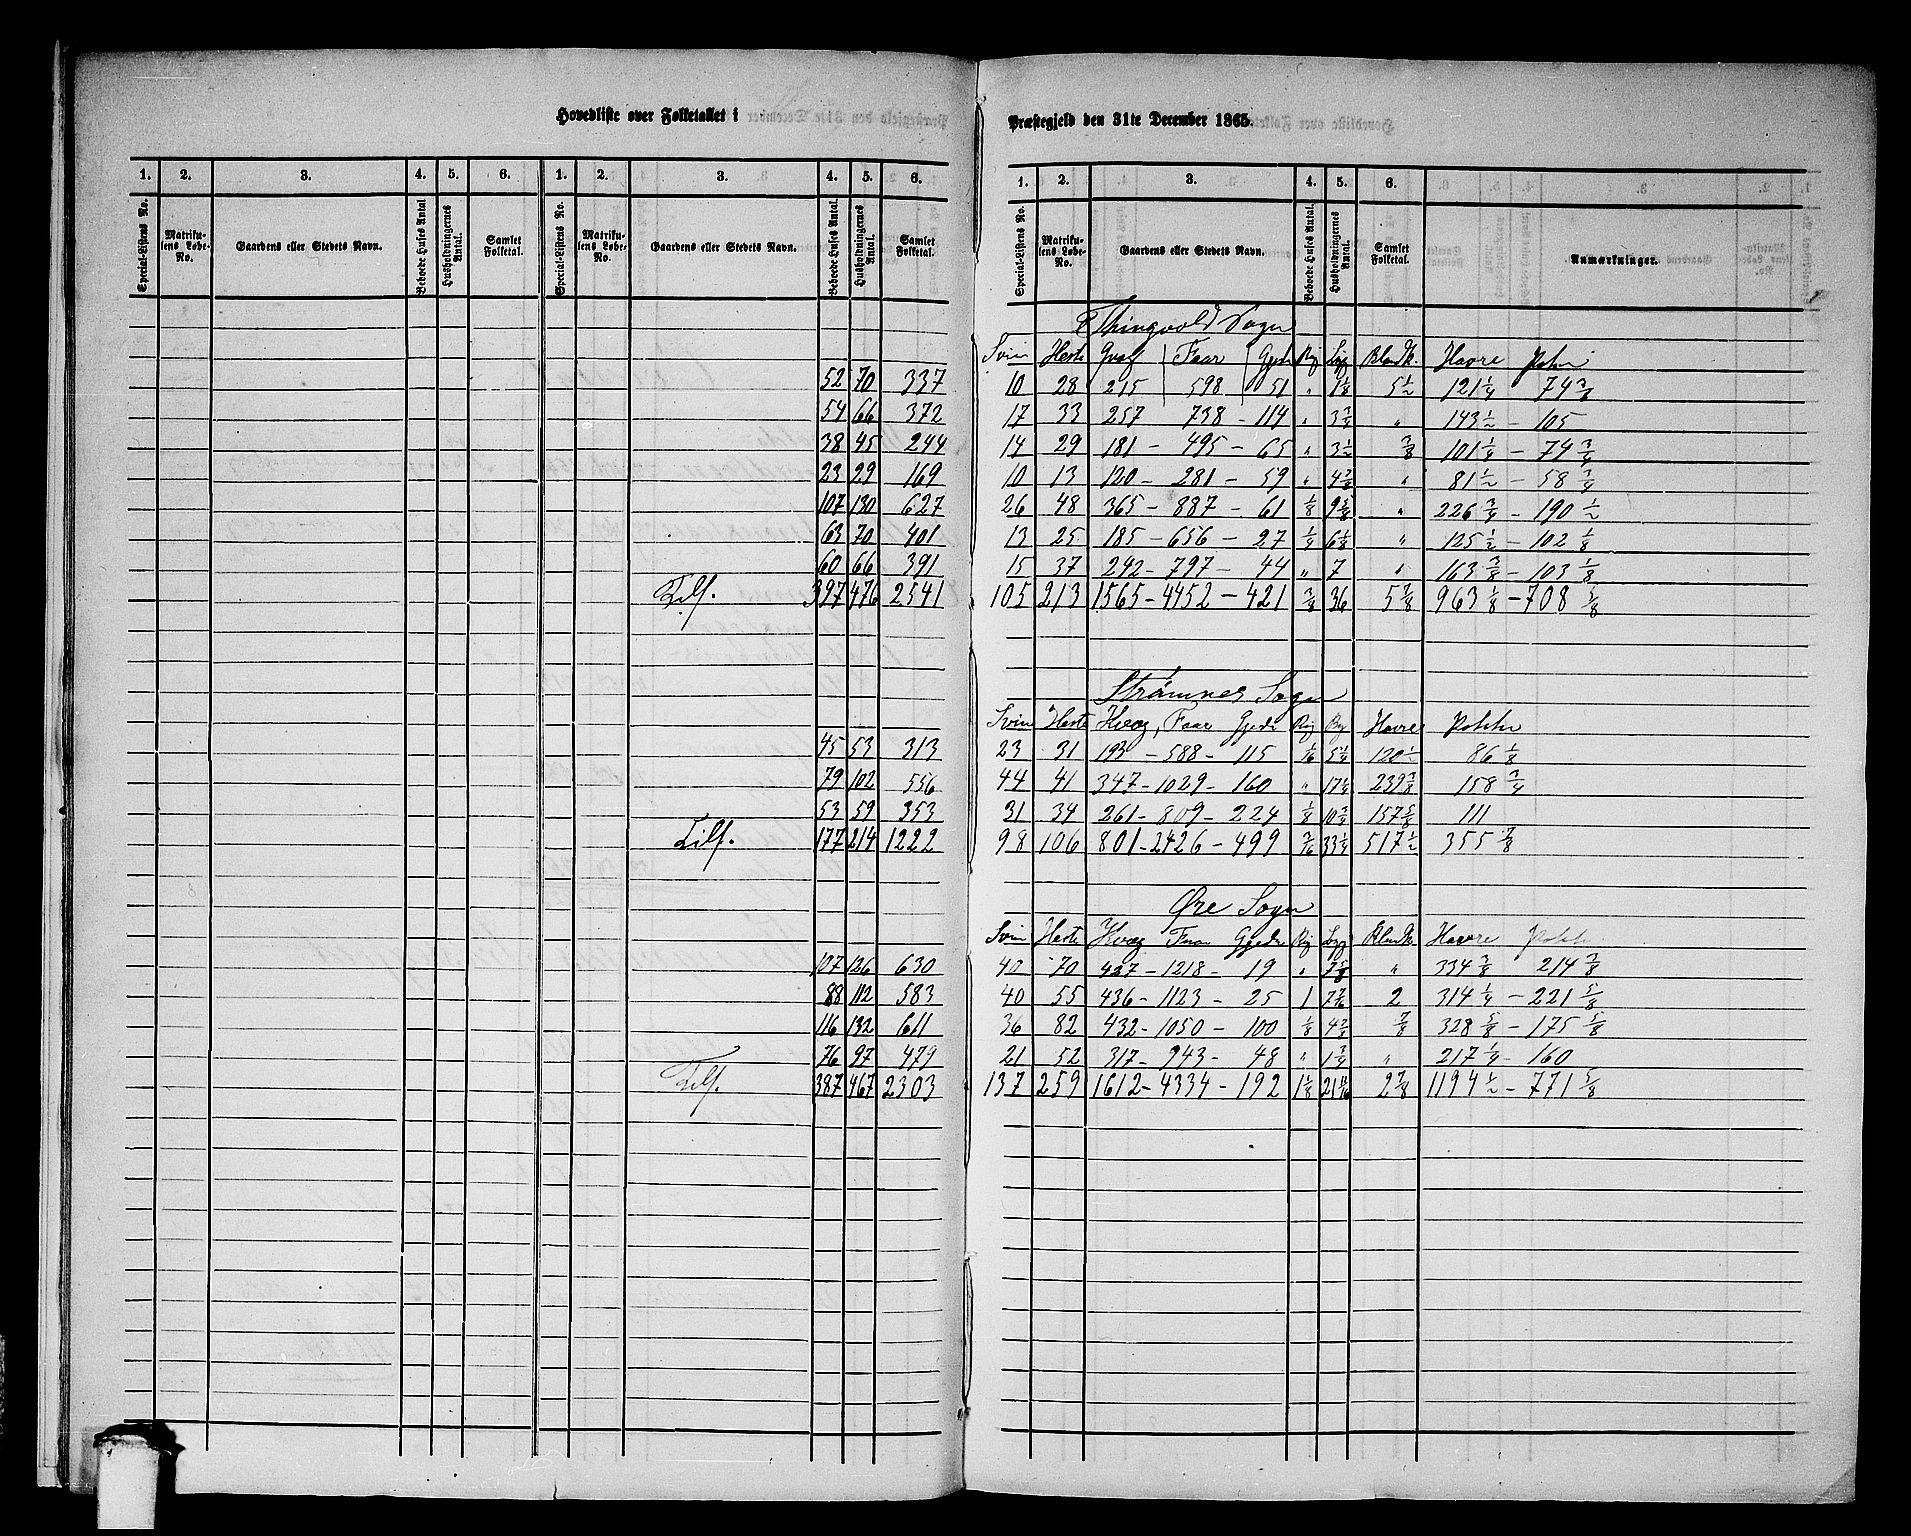 Hovedliste over Folketallet i Præstegjeld den 31te December 1865.
1. 2. 3. 4. 5. 6. 1. 2. 3. 4. 5. 6.
Special-Listens No. Matrikulens Løbe-No. Gaardens eller Stedets Navn. Beboede Huses Antal. Husholdningernes Antal. Samlet Folketal. Special-Listens No. Matrikulens Løbe-No. Gaardens eller Stedets Navn. Beboede Huses Antal. Husholdningernes Antal. Samlet Folketal.
52 70 337
54 66 372
38 45 244
23 29 169
107 130 627
63 70 401
60 66 391
Tils. 397 476 2541
45 53 313
79 102 556
53 59 353
Tils. 177 214 1222
107 126 630
88 112 583
116 132 611
76 97 479
Tils. 387 467 2303
1. 2. 3. 4. 5. 6.
Special-Listens No. Matrikulens Løbe-No. Gaardens eller Stedets Navn. Beboede Huses Antal. Husholdningernes Antal. Samlet Folketal. Anmærkninger.
Thingvold Sogn
Sviin Heste Qvæg Faar Gjeder Rug Byg Blandk. Havre Poteter
10 28 215 598 51 " 1 1/8 5 1/2 121 1/4 74 3/8
17 33 257 738 - 114 " 3 3/4 " 143 1/2 - 105
14 29 181 - 495 - 65 " 3 1/2 3/8 101 1/4 - 74 3/4
10 13 120 - 281 - 59 " 4 3/8 " 81 1/2 - 58 3/4
26 48 365 - 887 - 61 1/8 9 5/8 " 226 3/4 - 190 1/2
13 25 185 - 656 - 27 1/4 6 1/8 " 125 1/2 - 102 1/8
15 37 242 - 797 - 44 " 7 " 163 3/8 - 103 1/8
105 213 1565 - 4452 - 421 3/8 36 5 7/8 963 1/8 - 708 5/8
Strømnes Sogn
Sviin Heste Kvæg, Faar Gjeder Rug Byg Havre Poteter
23 31 193 - 588 - 115 1/16 5 1/4 120 1/2 86 1/8
44 41 347 - 1029 - 160 " 17 1/4 239 3/8 158 3/4
31 34 261 - 809 - 224 1/8 10 3/4 157 5/8 111
98 106 801 - 2426 - 499 3/16 33 1/4 517 1/2 355 7/8
Øre Sogn
Sviin Heste Kvæg Faar Gjeder Rug Byg Blandk. Havre Poteter
40 70 427 - 1218 - 19 " 7 5/8 " 334 3/8 214 3/8
40 55 436 - 1123 - 25 1 7 7/16 2 314 1/4 - 221 5/8
36 82 432 - 1050 - 100 1/8 4 3/4 7/8 328 5/8 - 175 5/8
21 52 317 - 943 - 48 " 1 3/4 " 217 1/4 - 160
137 259 1612 - 4334 - 192 1 1/8 21 2 7/8 1194 1/2 - 771 5/8